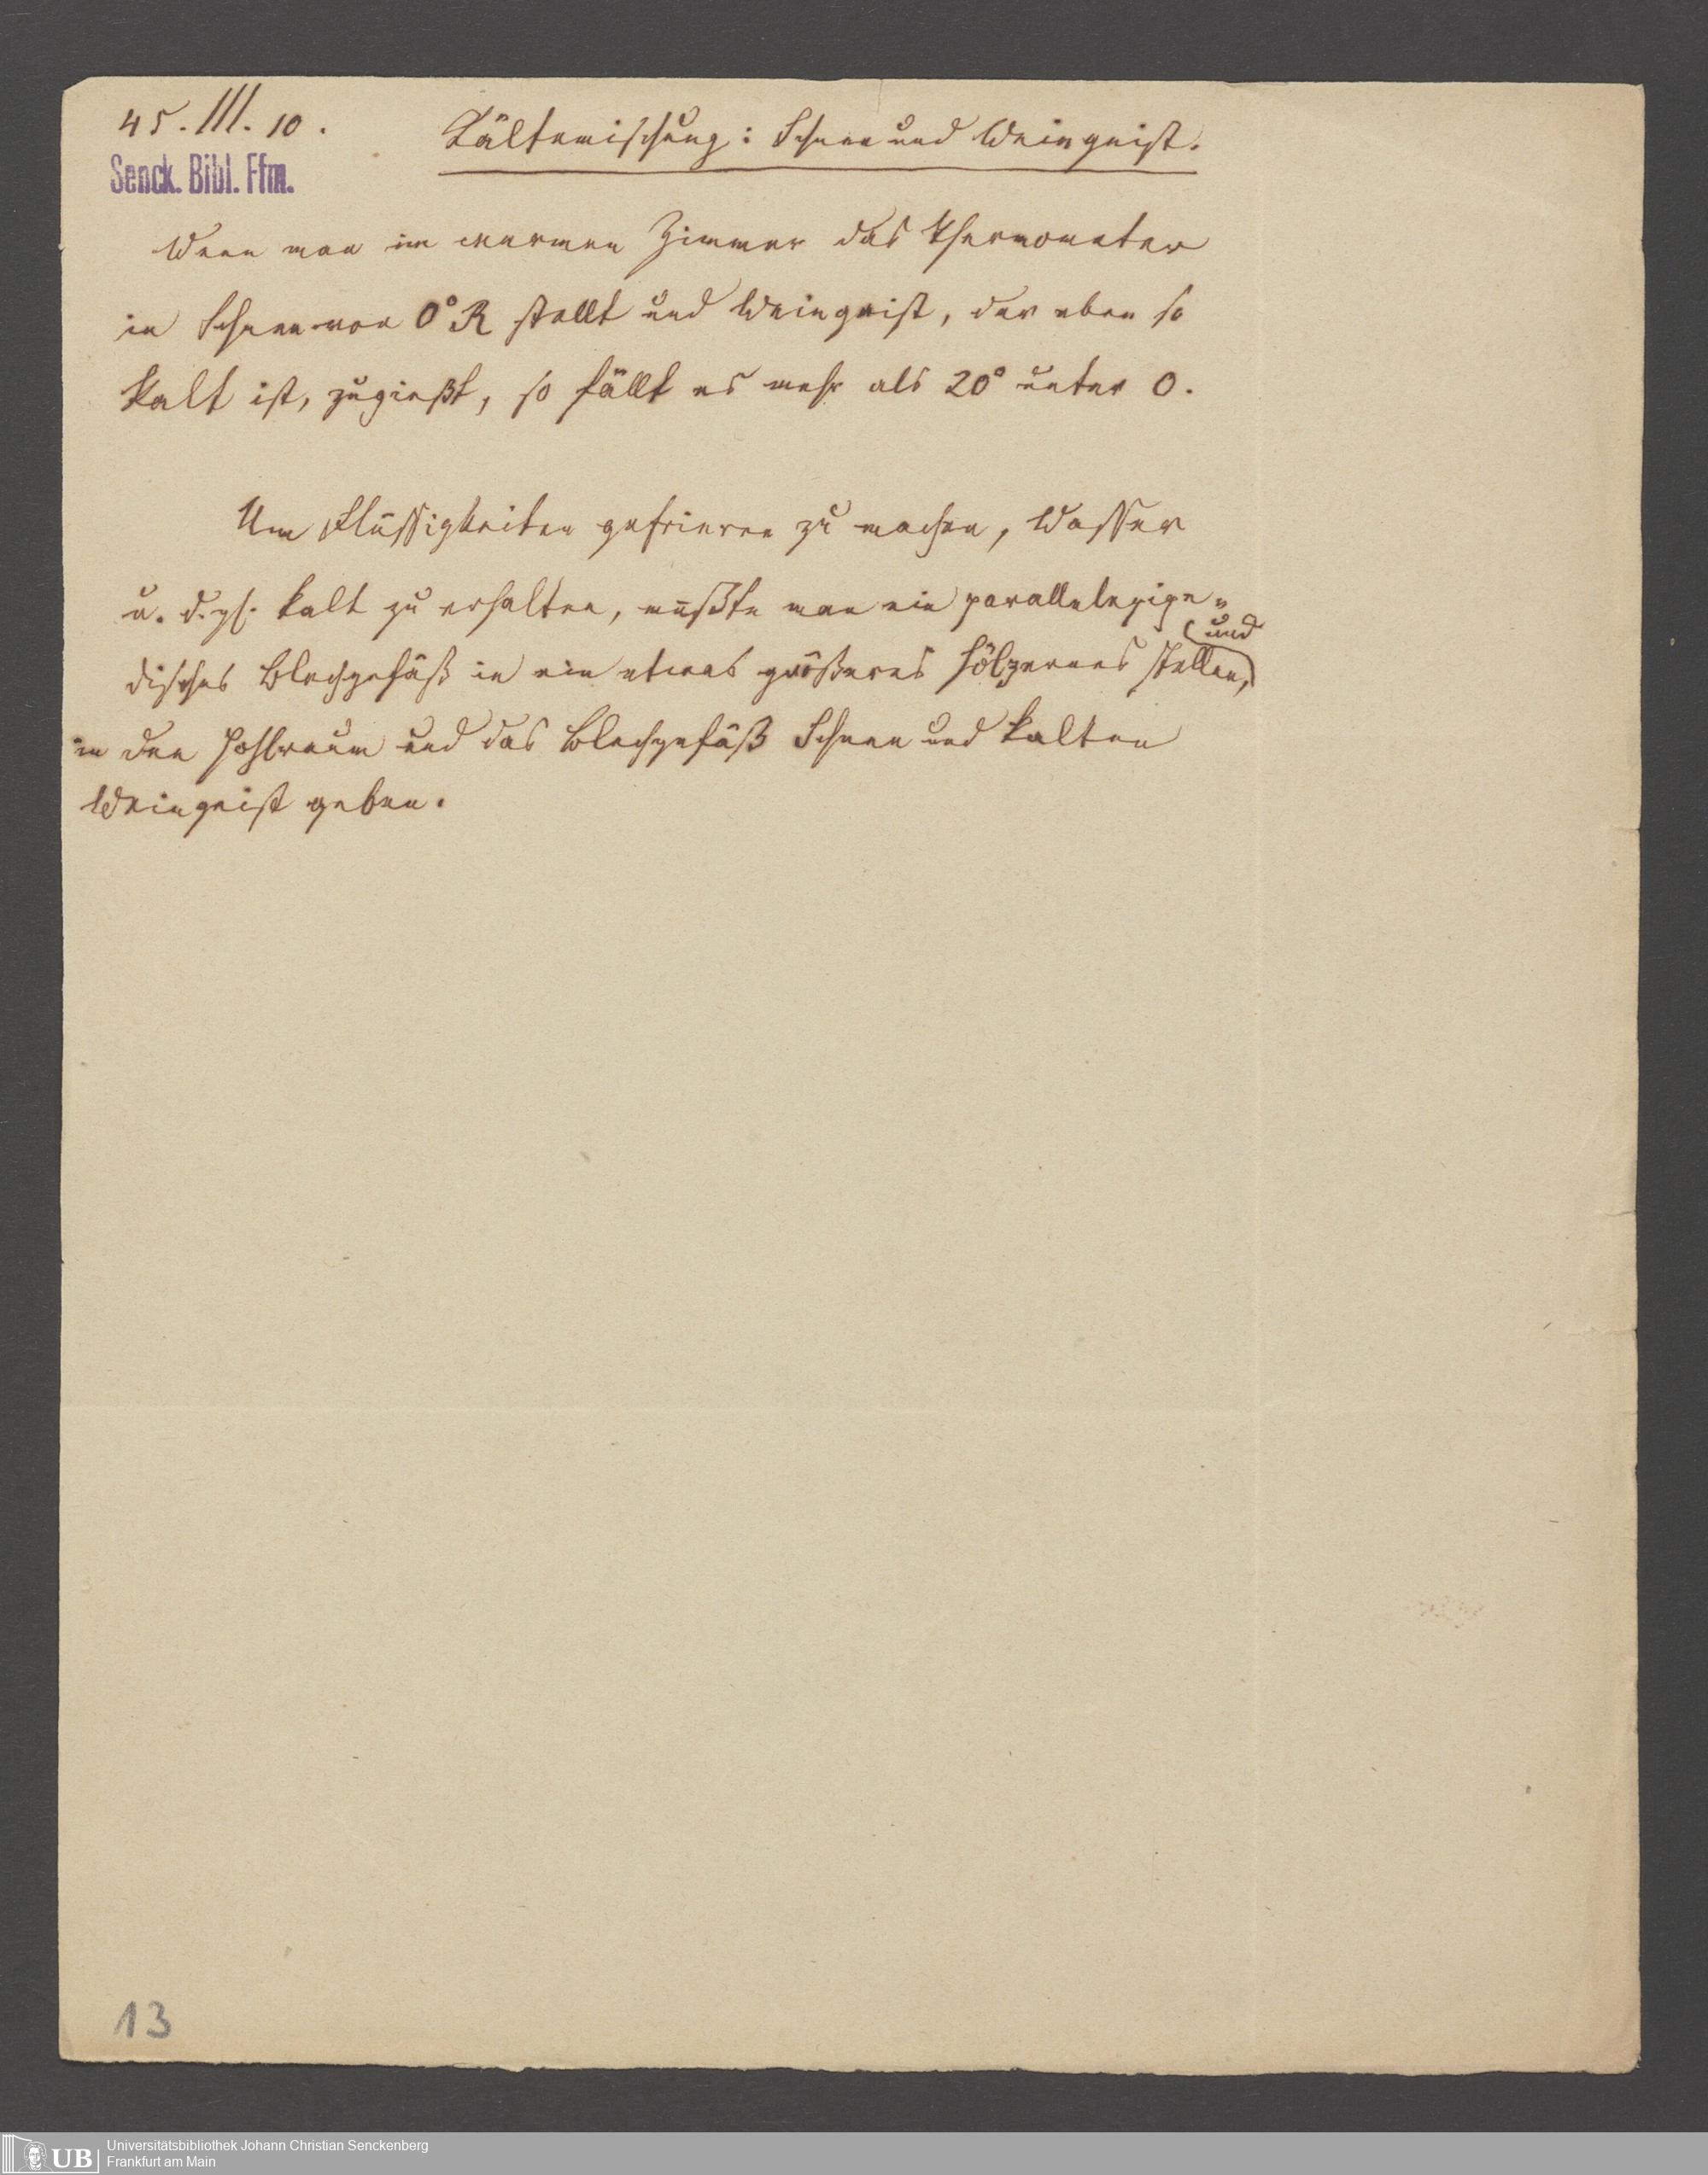 45. III. 10.
Kältemischung: Schnee und Weingeist.
Senck. Bibl. Ffm.
Wenn man im warmen Zimmer das Thermometer
in Schnee von 0° R stellt und Weingeist, der eben so
kalt ist, zugießt, so fällt es mehr als 20° unter 0.
Um Flüssigkeiten gefrieren zu machen, Wasser
u. d. gl. kalt zu erhalten, müßte man ein parallelepipe-
disches Blechgefäß in ein etwas größeres hölzernes stellen, und
in den Hohlraum und das Blechgefäß Schnee und kalten
Weingeist geben.
13
UB
Universitätsbibliothek Johann Christian Senckenberg
Frankfurt am Main